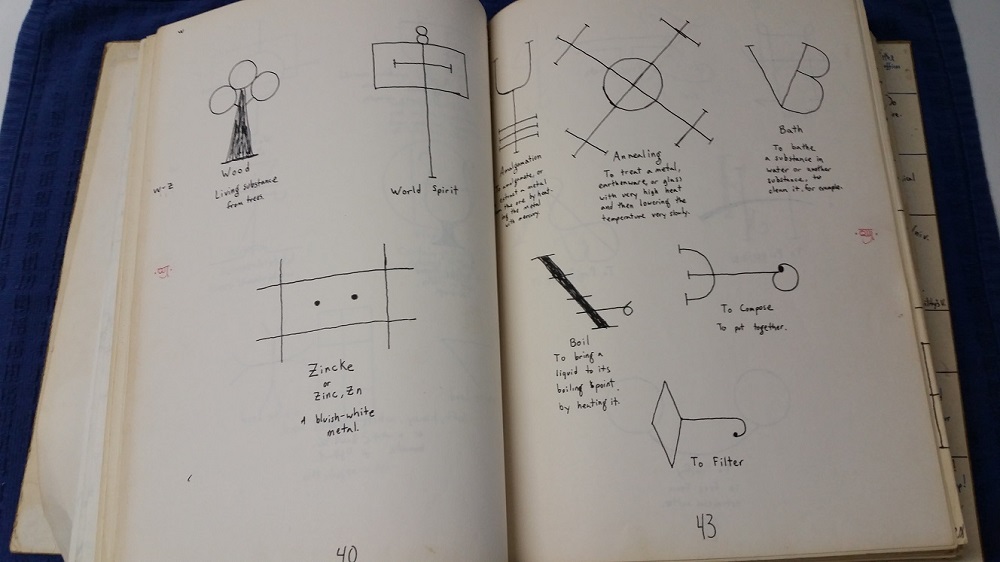 w
Wood
Living substance
from trees.
World Spirit
w-z
Zincke
or
Zinc, Zn
A bluish-white
metal.
40
Amalgamation
To amalgamate, or
extract a metal
from the ore by heat-
ing the metal
with mercury.
Annealing
To treat a metal,
earthenware, or glass
with very high heat
and then lowering the
temperature very slowly.
Bath
To bathe
a substance in
water or another
substance, to
clean it, for example.
Boil
To bring a
liquid to its
boiling point.
by heating it.
To Compose
To put together.
To Filter
43